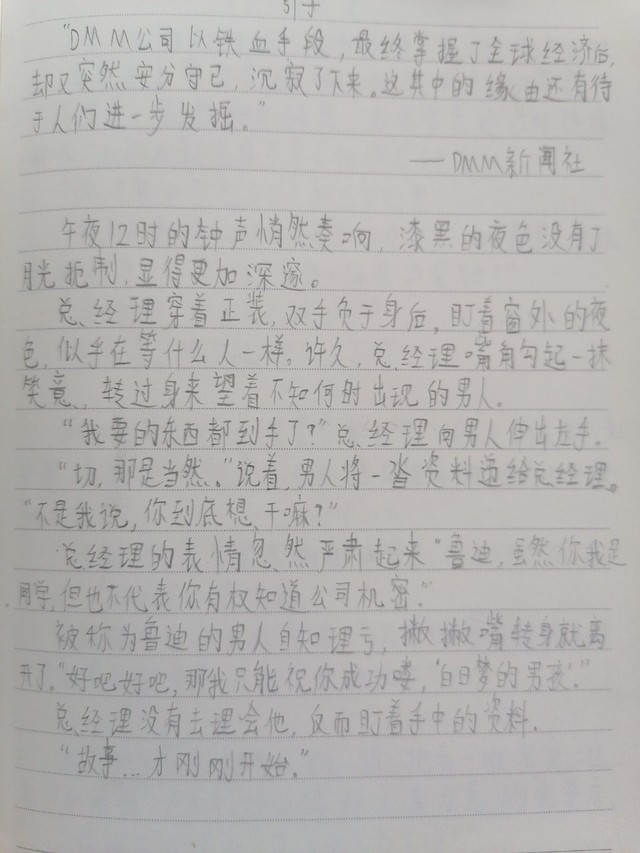 引子
"DMM公司以铁血手段，最终掌握了全球经济后，
却又突然安分守己，沉寂了下来。这其中的缘由还有待
于人们进一步发掘。"
——DMM新闻社
午夜12时的钟声悄然奏响，漆黑的夜色没有了
月光扼制，显得更加深邃。
总经理穿着正装，双手负于身后，盯着窗外的夜
色，似乎在等什么人一样。许久，总经理嘴角勾起一抹
笑意，转过身来望着不知何时出现的男人。
"我要的东西都到手了？"总经理向男人伸出左手。
"切，那是当然。"说着，男人将一沓资料递给总经理。
"不是我说，你到底想干嘛？"
总经理的表情忽然严肃起来"鲁迪，虽然你我是
同学，但也不代表你有权知道公司机密。"
被称为鲁迪的男人自知理亏，撇撇嘴转身就离
开了。"好吧好吧，那我只能祝你成功喽，'白日梦的男孩'."
总经理没有去理会他，反而盯着手中的资料.
"故事…才刚刚开始。"